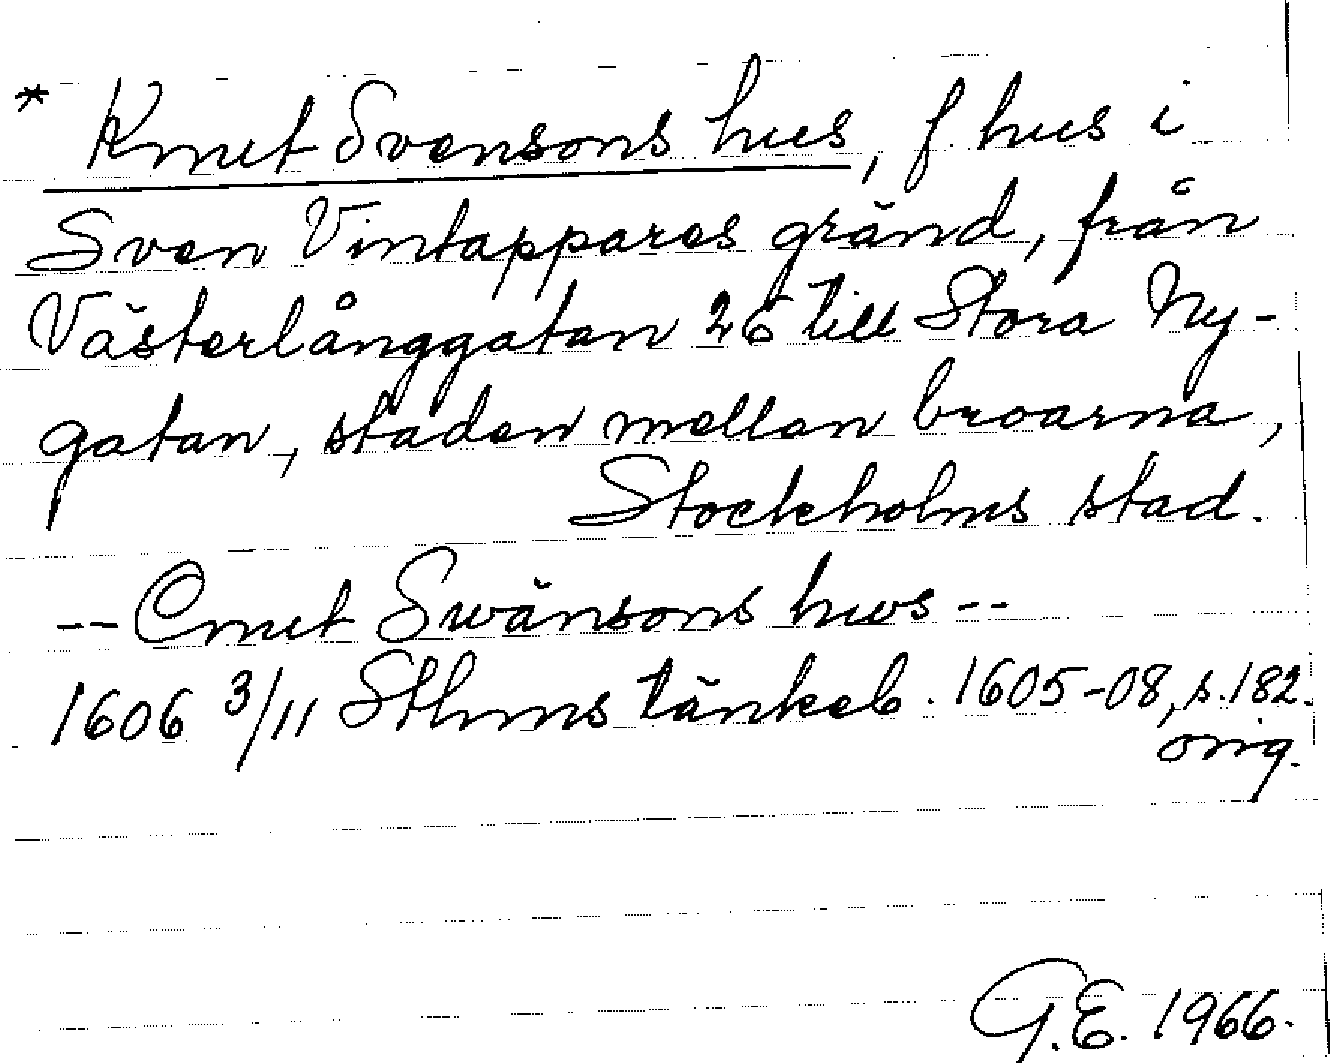 * Knut Svensons hus, f. hus i
Sven Vintappares gränd, från
Västerlånggatan 26 till Stora Ny-
gatan, staden mellan broarna,
Stockholms stad.
-- Cnut Swänsons hws --
1606 3/11 Sthms tänkeb. 1605-08, s. 182.
orig.
G.E. 1966.